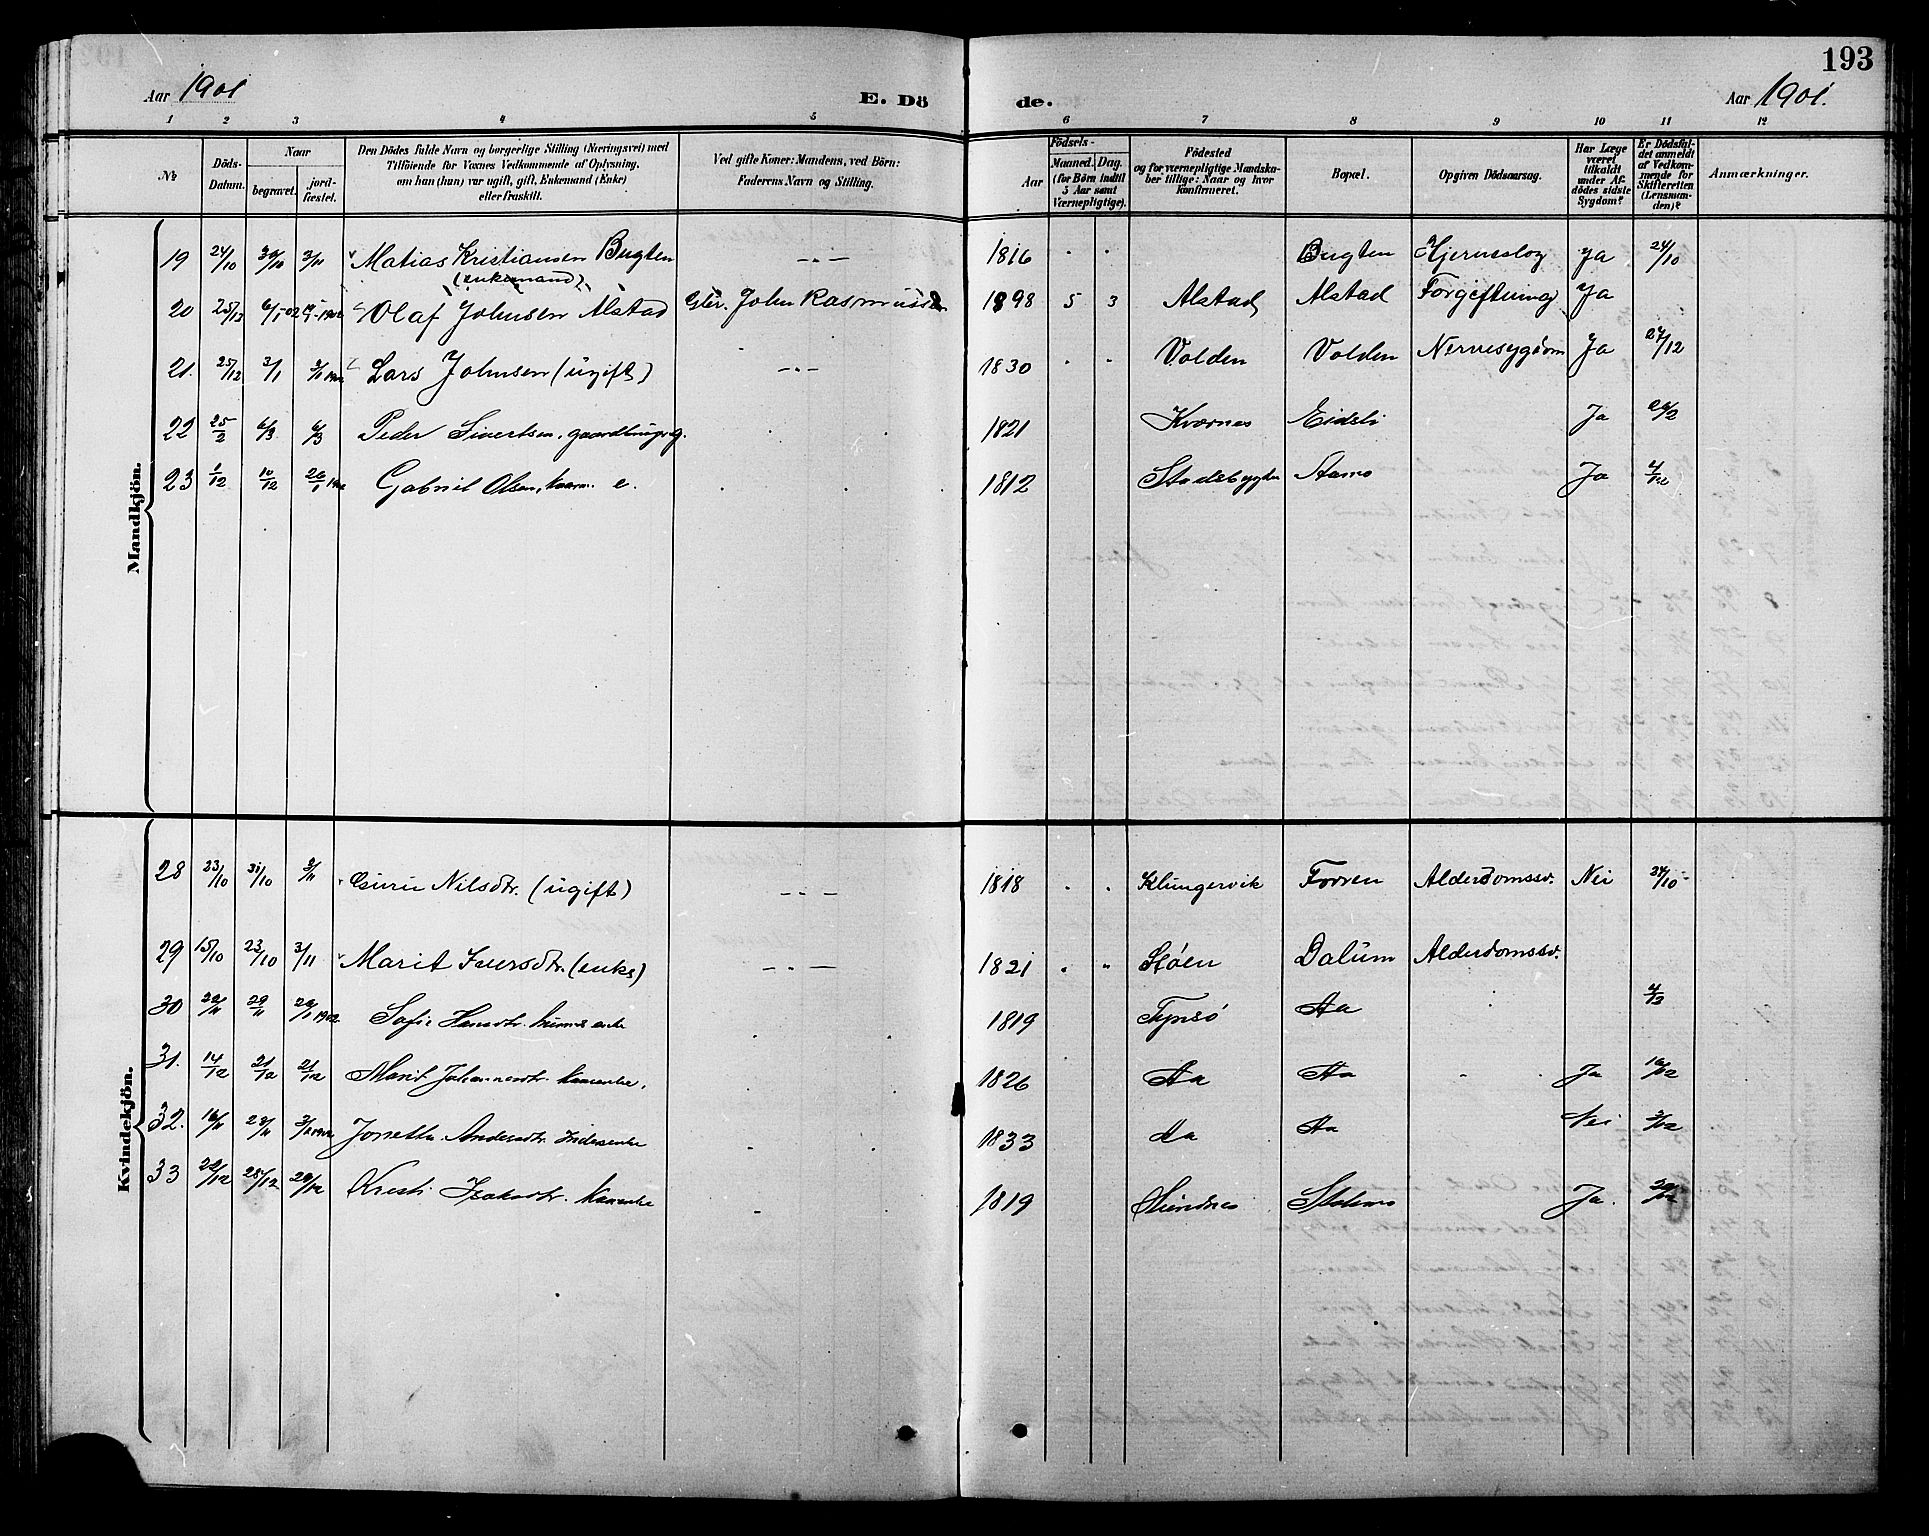 193
Aar 1901
E. Dö de.
Aar 1901.
1 2 3 4 5 6 7 8 9 10 11 12
№
Döds-Datum.
Naar
begravet.
jord-fæstet.
Den Dödes fulde Navn og borgerlige Stilling (Næringsvei) med
Tilföiende for Voxnes Vedkommende af Oplysning,
om han (hun) var ugift, gift, Enkemand (Enke)
eller fraskilt.
Ved gifte Koner: Mandens, ved Börn:
Faderens Navn og Stilling.
Födsels-
Aar
Maaned. Dag.
(for Börn indtil
5 Aar samt
Værnepligtige).
Födested
og for værnepligtige Mandska-
ber tillige: Naar og hvor
konfirmeret.
Bopæl.
Opgiven Dödsaarsag.
Har Læge
været
tilkaldt
under Af-
dödes sidste
Sygdom?
Er Dödsfal-
det anmeldt
af Vedkom-
mende for
Skifteretten
(Lensman-
den)?
Anmærkninger.
Mandkjön.
19 24/10 30/10 3/11 Matias Kristiansen Bugten - " - 1816 " " Bugten Hjerneslag Ja 24/10
(enkemand)
20 25/12 6/1-02 Olaf Johnsen Alstad Gbr. John Rasmussen 1898 5 3 Alstad Alstad Forgiftning Ja
21. 25/12 3/1 Lars Johnsen (ugift) - " - 1830 " " Volden Volden Nervesygdom Ja 27/12
22 25/2 6/3 6/3 Peder Sivertsen, gaardbruger g. 1821 Kvernes Eidsli Ja 26/2
23 1/12 10/12 Gabriel Olsen, kaarm. e. 1812 Stadsbygden Aamo Ja 4/12
Kvindekjön.
28 23/10 31/10 2/11 Guru Nilsdtr. (ugift) - " - 1818 " " Klungervik Forren Alderdomssv. Nei 24/10
29 15/10 23/10 3/11 Marit Iversdtr. (enke) - " - 1821 " " Støen Dalum Alderdomssv.
30 22/11 29/11 Sofie Hansdtr. enke 1819 Fynsö Aa 4/12
31. 14/12 21/12 21/12 Marit Johannesdtr. kaarenke. 1826 Aa Aa Ja 16/12
32. 16/11 23/11 Jonetta Andersdtr. Inderstenke 1833 Aa Aa Nei 3/12
33 22/12 28/12 Kresti Isaksdtr. kaarenke 1819 Ja.